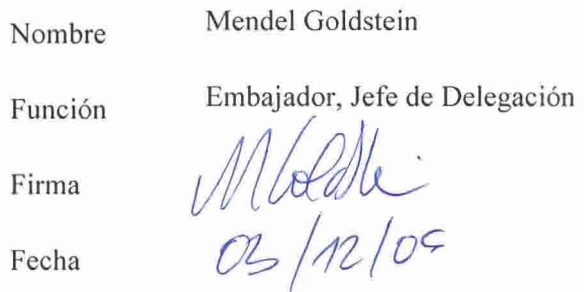 Nombre Mendel Goldstein
Función Embajador, Jefe de Delegación
Firma
Fecha 03/12/09